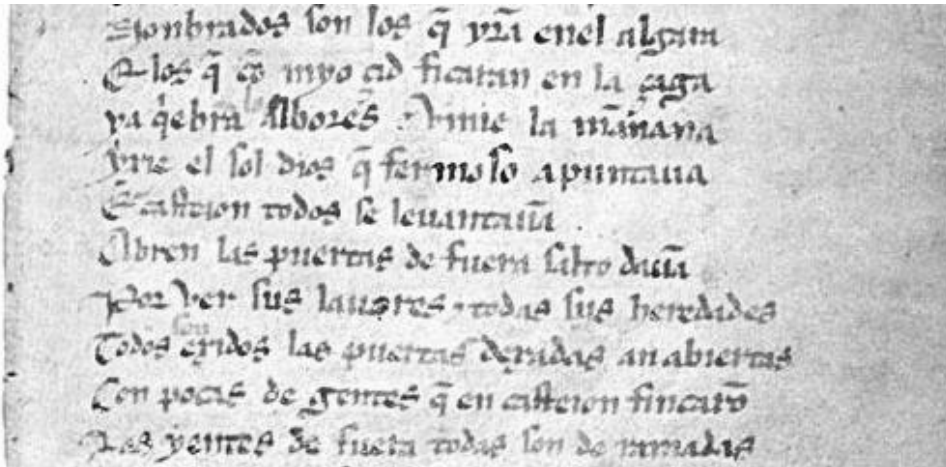 Nonbrados son los q̃ yrã enel algara
E los q̃ cõ myo çid ficaran en la çaga
ya q̇ebrã los albores ⁊ vinie la mañana
yxie el sol dios q̃ fermoso apuntaua
Ẽ casteion todos se leuantauã
Abren las puertas de fuera salto dauã
Por ver sus lauores ⁊ todas sus heredades
Todos son exidos las puertas dexadas an abiertas
Con pocas de gentes q̃ en casteion fincarõ
Las yentes de fuera todas son de ramadas